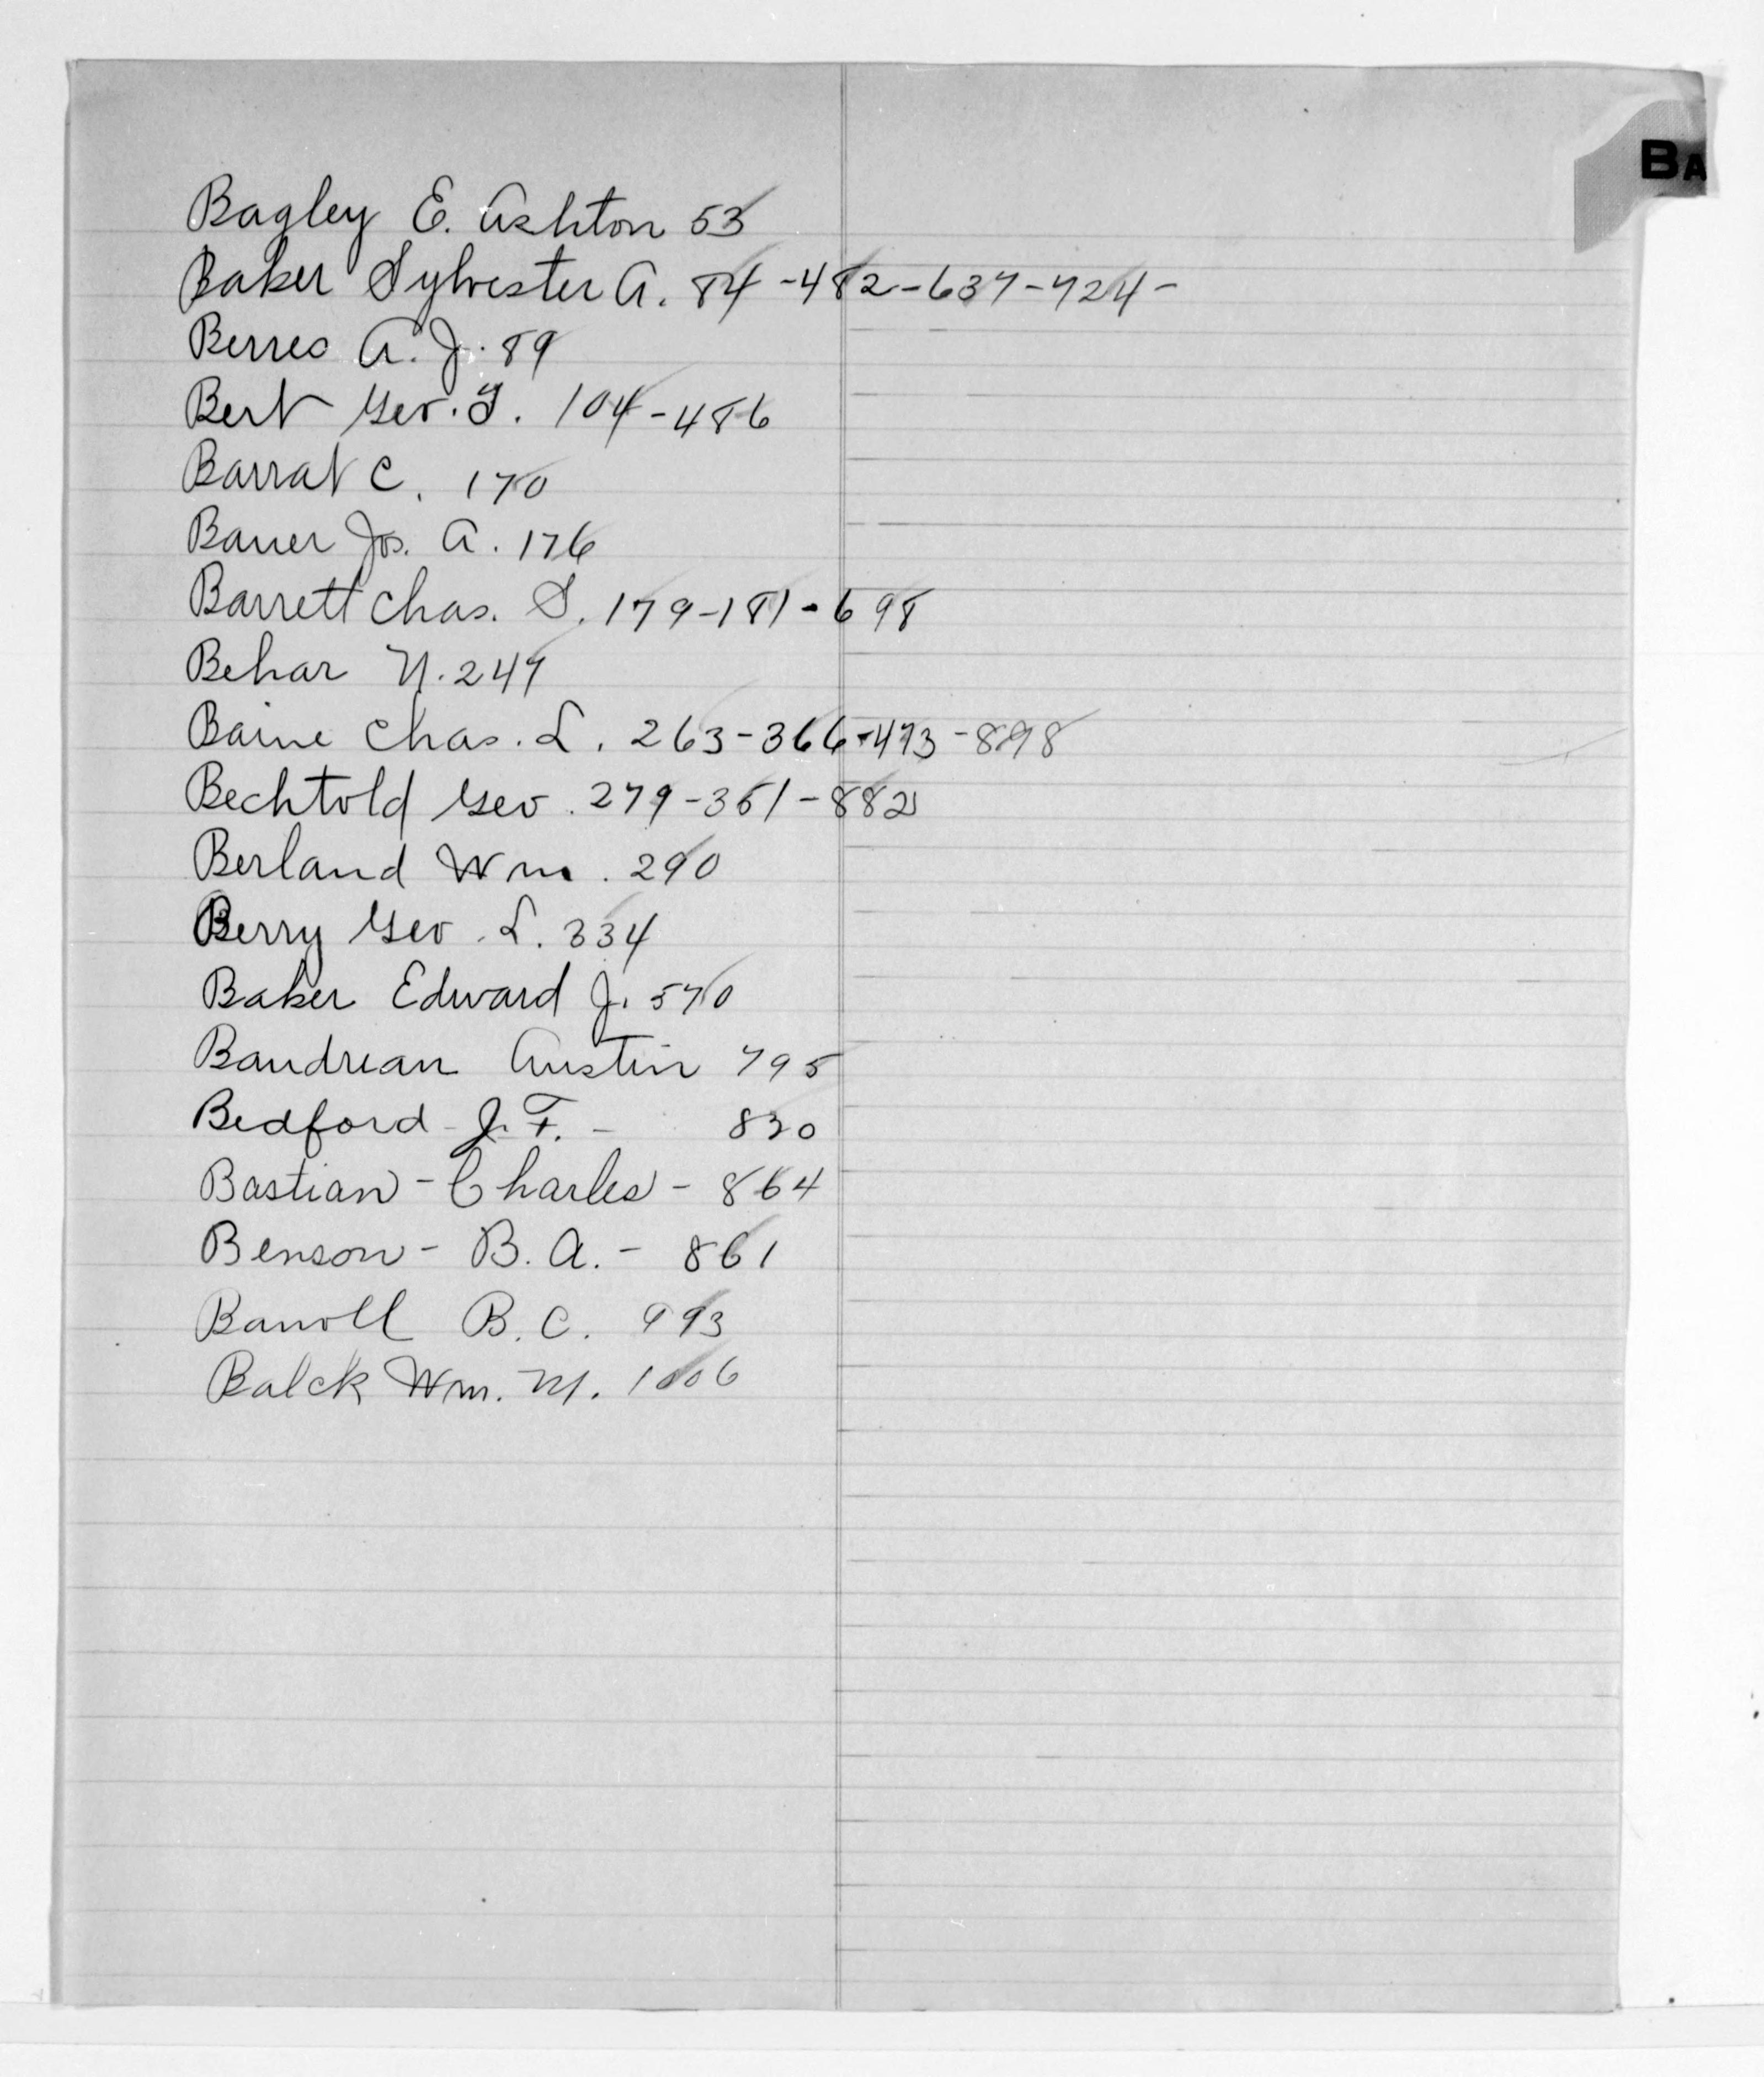 BA
Bagley E. Ashton 53
Baker Sylvester A. 84-482-637-724-
Berres A. J. 89
Bert Geo. T. 104-486
Barrat C. 170
Bauer Jos. A. 176
Barrett Chas. S. 179-181-698
Behar N. 247
Baine Chas. L. 263-366-473-898
Bechtold Geo. 279-351-882
Berland Wm. 290
Berry Geo. L. 334
Baker Edward J. 570
Baudrean Austin 795
Bedford J. F. - 830
Bastian - Charles - 864
Benson - B. A. - 861
B. C. 993
Balck Wm. M. 1006